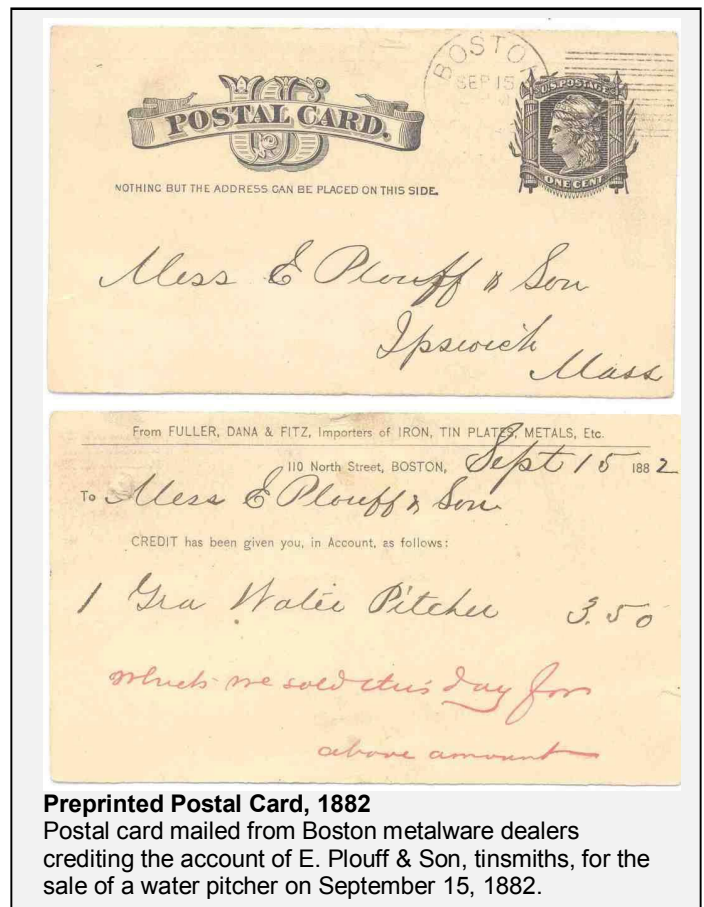 BOSTO
SEP 15
U.S. POSTAGE
US
POSTAL CARD.
NOTHING BUT THE ADDRESS CAN BE PLACED ON THIS SIDE.
ONE CENT
Mess E Plouff & Son
Ipswich
Mass
From FULLER, DANA & FITZ, Importers of IRON, TIN PLATES, METALS, Etc.
110 North Street, BOSTON, Sept 15 1882
To Mess E Plouff & Son
CREDIT has been given you, in Account, as follows:
1 Gra Water Pitcher 3.50
which we sold this day for
above amount
Preprinted Postal Card, 1882
Postal card mailed from Boston metalware dealers
crediting the account of E. Plouff & Son, tinsmiths, for the
sale of a water pitcher on September 15, 1882.